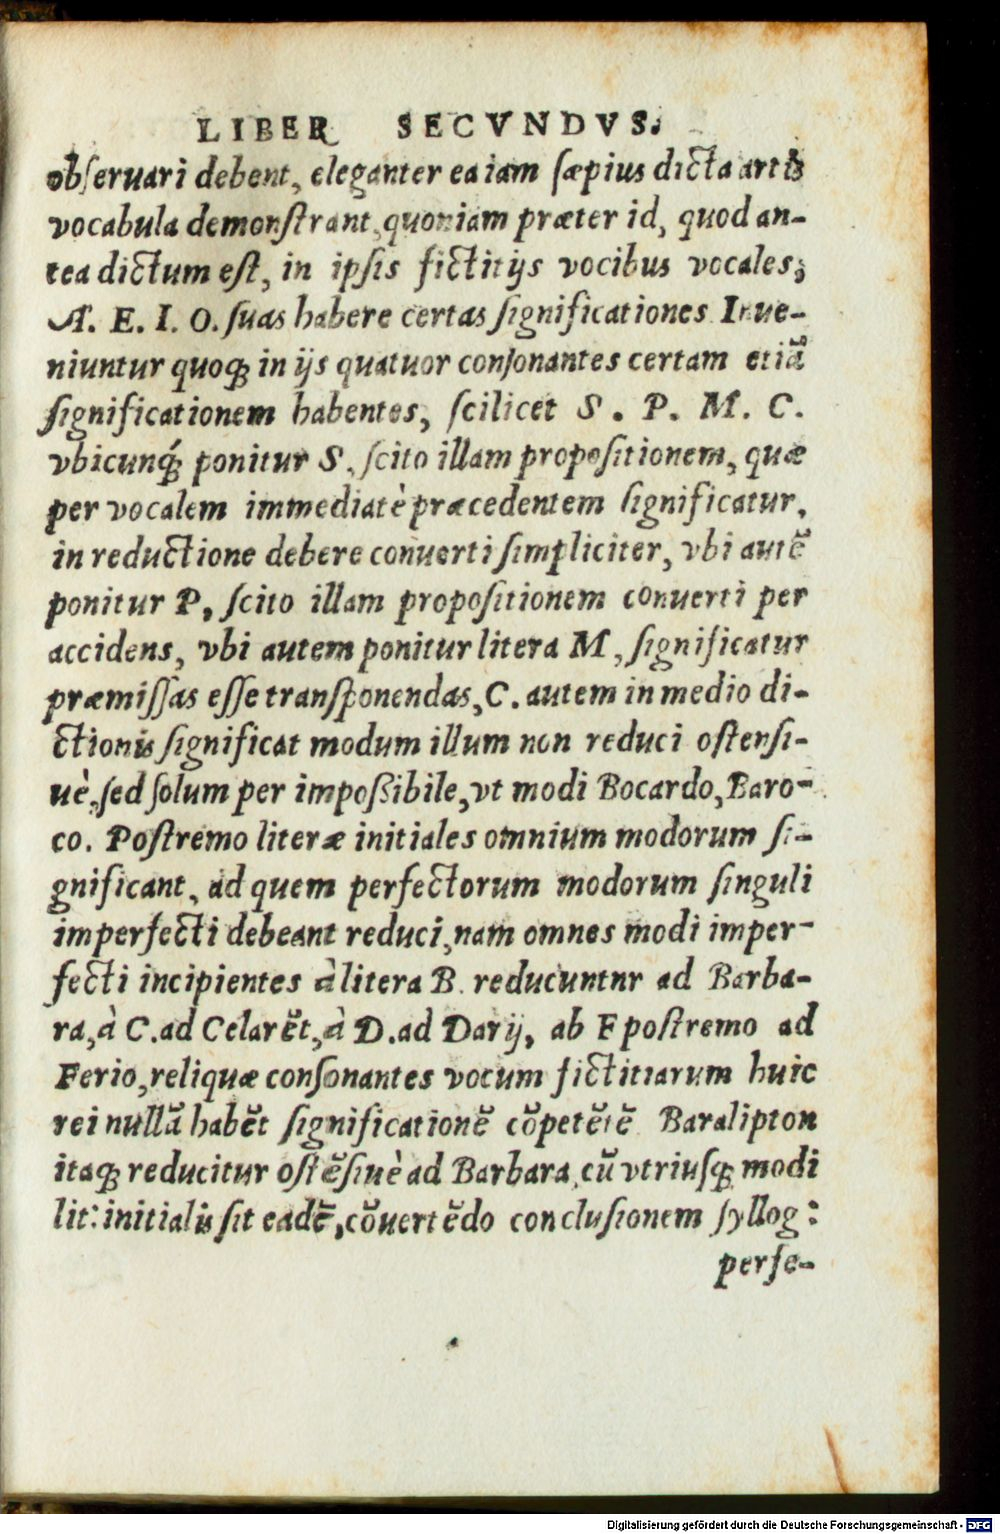 LIBER SECVNDVS.
obſeruari debent, eleganter ea iam ſæpius dicta artis
vocabula demonſtrant, quoniam præter id, quod an-
tea dictum eſt, in ipſis fictitijs vocibus vocales,
A. E. I. O. ſuas habere certas ſignificationes Inue-
niuntur quoq; in ijs quatuor conſonantes certam etiã
ſignificationem habentes, ſcilicet S. P. M. C.
vbicunq; ponitur S, ſcito illam propoſitionem, quæ
per vocalem immediatè præcedentem ſignificatur,
in reductione debere conuerti ſimpliciter, vbi autẽ
ponitur P, ſcito illam propoſitionem conuerti per
accidens, vbi autem ponitur litera M, ſignificatur
præmiſſas eſſe tranſponendas, C. autem in medio di-
ctionis ſignificat modum illum non reduci oſtenſi-
uè, ſed ſolum per impoſſibile, vt modi Bocardo, Baro-
co. Poſtremo literæ initiales omnium modorum ſi-
gnificant, ad quem perfectorum modorum ſinguli
imperfecti debeant reduci, nam omnes modi imper-
fecti incipientes à litera B. reducuntnr ad Barba-
ra, à C. ad Celarẽt, à D. ad Darij, ab F poſtremo ad
Ferio, reliquæ conſonantes vocum fictitiarum huic
rei nullã habẽt ſignificationẽ cõpetẽtẽ Baralipton
itaq; reducitur oſtẽſiuè ad Barbara, cũ vtriuſq; modi
lit: initialis ſit eadẽ, cõuertẽdo concluſionem ſyllog:
perfe-
Digitalisierung gefördert durch die Deutsche Forschungsgemeinschaft - DFG